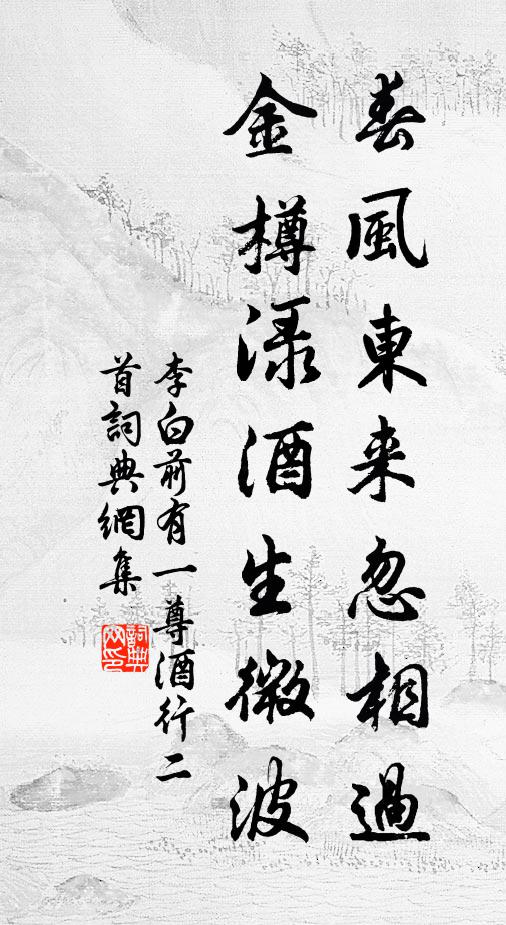 春風東来忽相過
金樽渌酒生微波
李白前有一尊酒行二
首詞典網集
詞典
网印